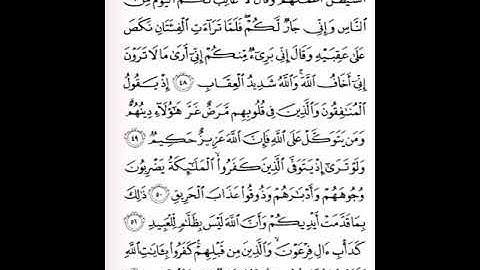 ٱلشَّيْطَٰنُ أَعْمَٰلَهُمْ وَقَالَ لَا غَالِبَ لَكُمُ ٱلْيَوْمَ مِنَ
ٱلنَّاسِ وَإِنِّى جَارٌ لَّكُمْ ۖ فَلَمَّا تَرَآءَتِ ٱلْفِئَتَانِ نَكَصَ
عَلَىٰ عَقِبَيْهِ وَقَالَ إِنِّى بَرِىٓءٌ مِّنكُمْ إِنِّىٓ أَرَىٰ مَا لَا تَرَوْنَ
إِنِّىٓ أَخَافُ ٱللَّهَ ۚ وَٱللَّهُ شَدِيدُ ٱلْعِقَابِ ٤٨ إِذْ يَقُولُ
ٱلْمُنَٰفِقُونَ وَٱلَّذِينَ فِى قُلُوبِهِم مَّرَضٌ غَرَّ هَٰٓؤُلَآءِ دِينُهُمْ ۗ
وَمَن يَتَوَكَّلْ عَلَى ٱللَّهِ فَإِنَّ ٱللَّهَ عَزِيزٌ حَكِيمٌ ٤٩
وَلَوْ تَرَىٰٓ إِذْ يَتَوَفَّى ٱلَّذِينَ كَفَرُوا۟ ۙ ٱلْمَلَٰٓئِكَةُ يَضْرِبُونَ
وُجُوهَهُمْ وَأَدْبَٰرَهُمْ وَذُوقُوا۟ عَذَابَ ٱلْحَرِيقِ ٥٠ ذَٰلِكَ
بِمَا قَدَّمَتْ أَيْدِيكُمْ وَأَنَّ ٱللَّهَ لَيْسَ بِظَلَّٰمٍ لِّلْعَبِيدِ ٥١
كَدَأْبِ ءَالِ فِرْعَوْنَ ۙ وَٱلَّذِينَ مِن قَبْلِهِمْ ۚ كَفَرُوا۟ بِـَٔايَٰتِ ٱللَّهِ